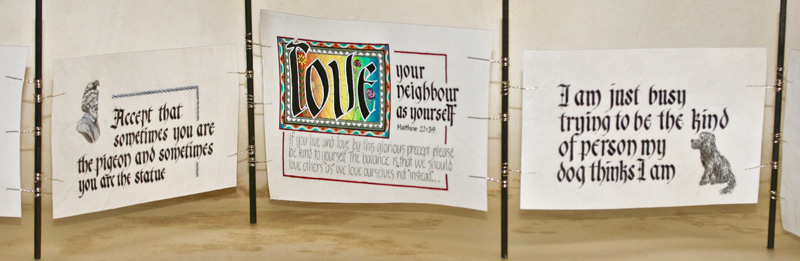 Accept that
sometimes you are
the pigeon and sometimes
you are the statue
Love
your
neighbour
as yourself
Matthew 22:39
If you live and love by this glorious precept please
be kind to yourself. The balance is, that we should
love others "as" we love ourselves not "instead"...
I am just busy
trying to be the kind
of person my
dog thinks I am